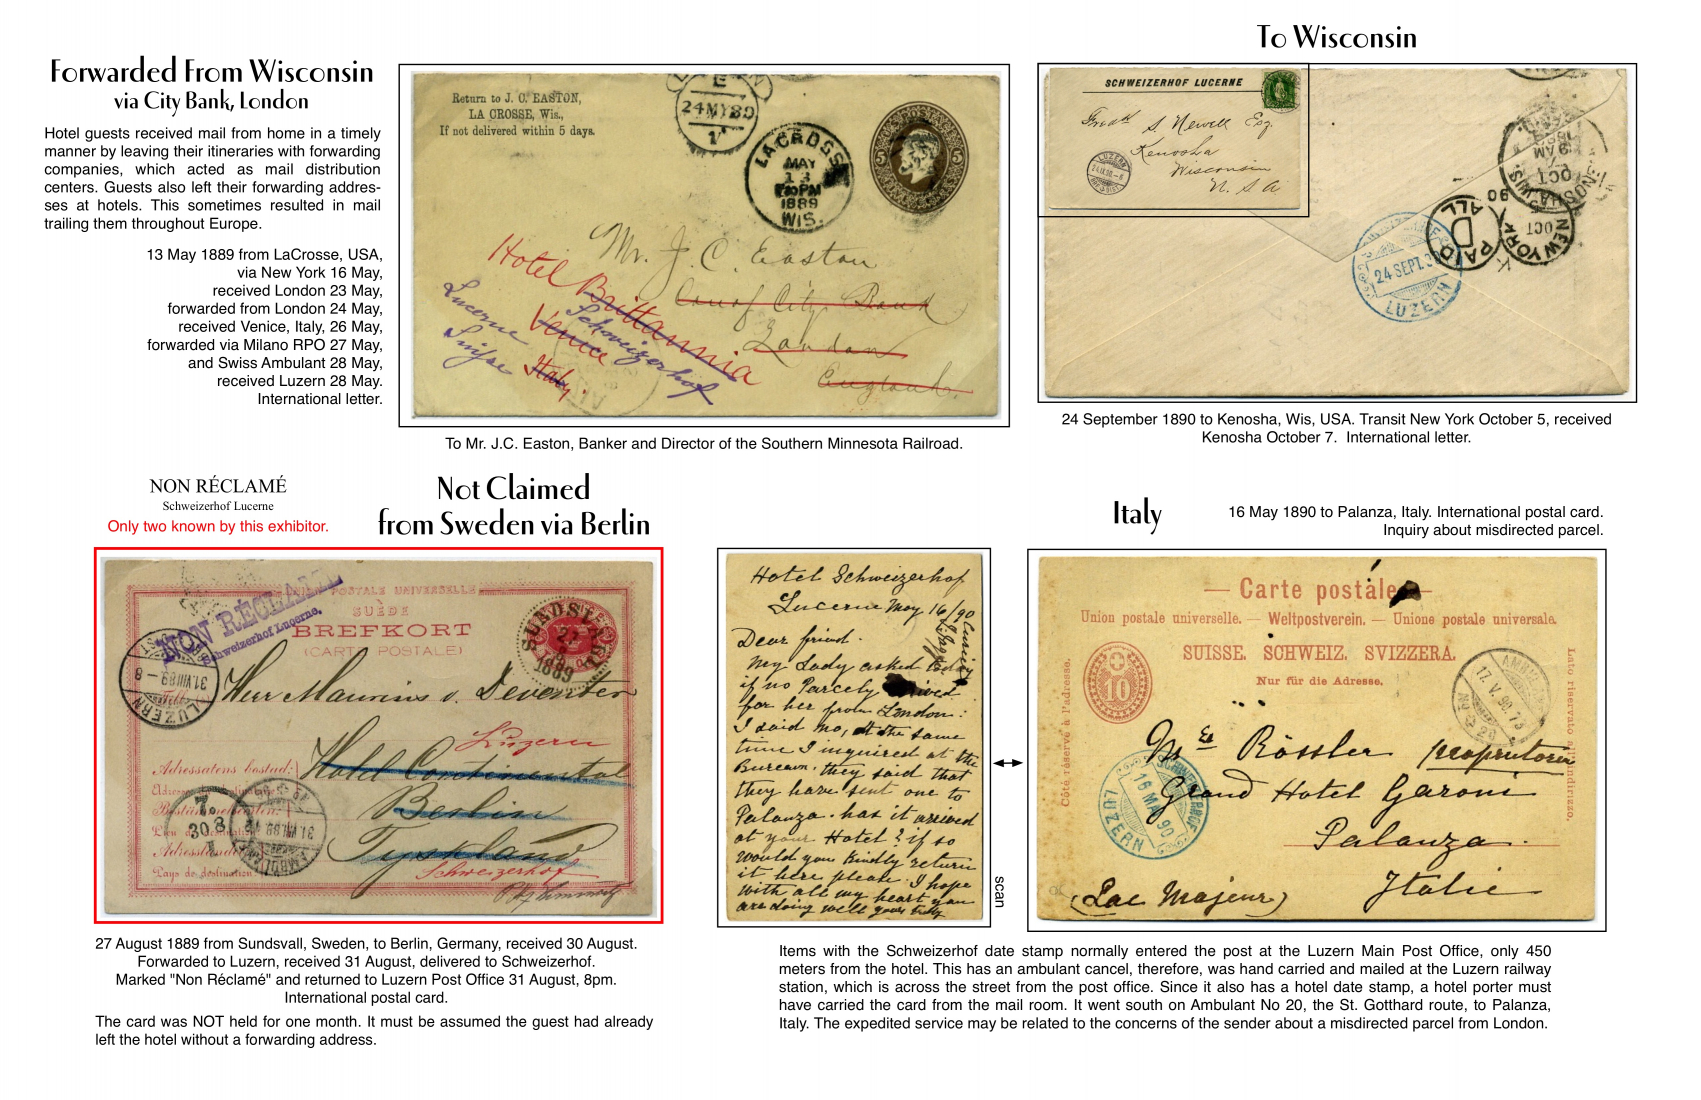 Forwarded From Wisconsin
via City Bank, London
Hotel guests received mail from home in a timely
manner by leaving their itineraries with forwarding
companies, which acted as mail distribution
centers. Guests also left their forwarding addres-
ses at hotels. This sometimes resulted in mail
trailing them throughout Europe.
13 May 1889 from LaCrosse, USA,
via New York 16 May,
received London 23 May,
forwarded from London 24 May,
received Venice, Italy, 26 May,
forwarded via Milano RPO 27 May,
and Swiss Ambulant 28 May,
received Luzern 28 May.
International letter.
Return to J. C. EASTON,
LA CROSSE, Wis.,
If not delivered within 5 days.
E
24MY89
1
LA CROSSE
MAY
13
7 30 PM
1889
WIS.
5 5
Mr. J. C. Easton
Care of City Bank
London
England.
Hotel Brittannia
Venice
Italy.
Schweizerhof
Lucerne
Suisse
To Mr. J.C. Easton, Banker and Director of the Southern Minnesota Railroad.
To Wisconsin
SCHWEIZERHOF LUCERNE
Fredk S. Newell Esq.
Kenosha
Wisconsin
U. S. A
LUZERN
24 SEPT. 90
LUZERN
PAID
ALL
NEW YORK
OCT
90
KENOSHA WIS
OCT
AM
24 September 1890 to Kenosha, Wis, USA. Transit New York October 5, received
Kenosha October 7. International letter.
NON RÉCLAMÉ
Schweizerhof Lucerne
Only two known by this exhibitor.
Not Claimed
from Sweden via Berlin
NON RÉCLAMÉ
Schweizerhof Lucerne.
POSTALE UNIVERSELLE
SUÈDE
BREFKORT
(CARTE POSTALE)
SUNDSVALL
27
8
1889
LUZERN
31.VIII.89-8
Herr Maurius v. Deventer
Luzern
Hotel Continental
Berlin
Tyskland
Schweizerhof
Adressatens bostad:
Pays de destination:
30 8
27 August 1889 from Sundsvall, Sweden, to Berlin, Germany, received 30 August.
Forwarded to Luzern, received 31 August, delivered to Schweizerhof.
Marked "Non Réclamé" and returned to Luzern Post Office 31 August, 8pm.
International postal card.
The card was NOT held for one month. It must be assumed the guest had already
left the hotel without a forwarding address.
Italy
16 May 1890 to Palanza, Italy. International postal card.
Inquiry about misdirected parcel.
Hotel Schweizerhof
Lucerne May 16/90
Dear friend.
My Lady asked
if no Parcely
for her from London:
I said no, at the same
time I inquired at the
Bureau. they said that
they have sent one to
Palanza. has it arrived
at your Hotel? if so
would you kindly return
it here please. I hope
with all my heart you
are doing well yours truly
scan
— Carte postale —
Union postale universelle. — Weltpostverein. — Unione postale universale.
SUISSE. SCHWEIZ. SVIZZERA.
Nur für die Adresse.
10
Côté réservé à l'adresse.
Lato riservato all'indirizzo.
AMBULANT
17.V.90.
No 20
SCHWEIZERHOF
16 MAI 90
LUZERN
Rössler propritorin
Grand Hotel Garoni
Palanza.
Italie
(Lac Majeur)
Items with the Schweizerhof date stamp normally entered the post at the Luzern Main Post Office, only 450
meters from the hotel. This has an ambulant cancel, therefore, was hand carried and mailed at the Luzern railway
station, which is across the street from the post office. Since it also has a hotel date stamp, a hotel porter must
have carried the card from the mail room. It went south on Ambulant No 20, the St. Gotthard route, to Palanza,
Italy. The expedited service may be related to the concerns of the sender about a misdirected parcel from London.